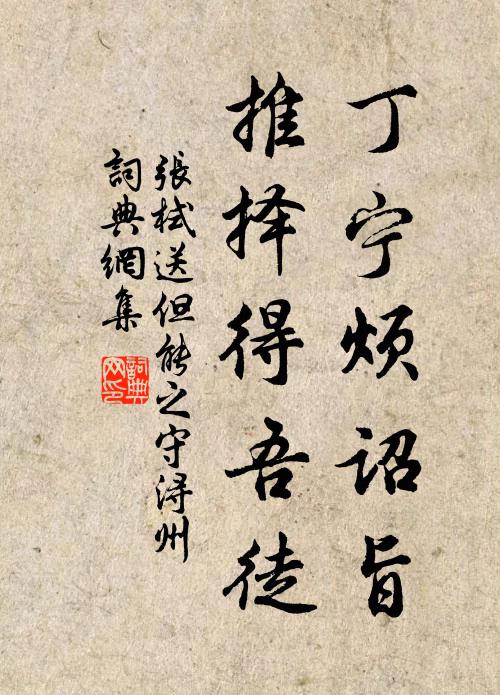 丁宁烦诏旨
推择得吾徒
張栻送但能之守潯州
詞典網集
詞典
网印